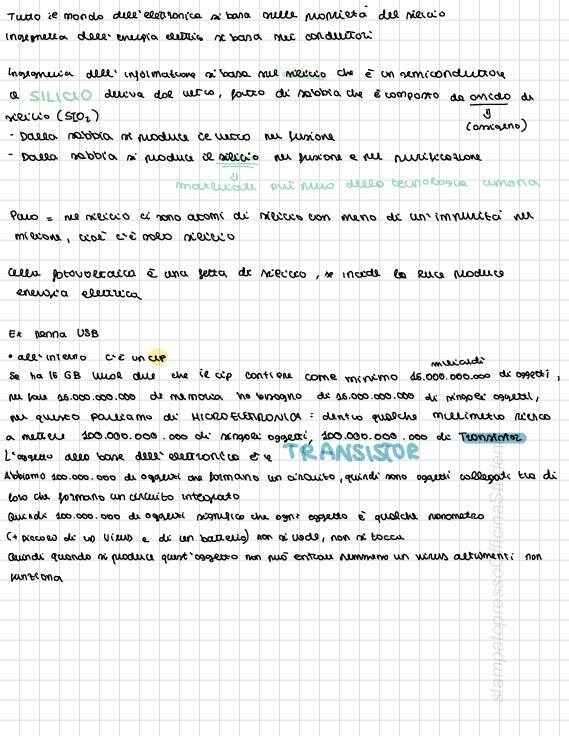 Tutto il mondo dell'elettronica si basa sulle proprietà del silicio
Ingegneria dell'energia elettrica si basa sui conduttori
Ingegneria dell'informazione si basa sul silicio che è un semiconduttore
Il SILICIO deriva dal vetro, fatto di sabbia che è composto da ossido di
silicio (SIO₂)
⇓
(ossigeno)
- Dalla sabbia si produce il vetro per fusione
- Dalla sabbia si produce il silicio per fusione e per purificazione
⇓
materiale più puro della tecnologia umana
Puro = nel silicio ci sono atomi di silicio con meno di un'impurità per
milione, cioè c'è solo silicio
Cella fotovoltaica è una fetta di silicio, se incide la luce produce
energia elettrica
Ex penna USB
• all'interno c'è un cip
miliardi
Se ha 16 GB vuol dire che il cip contiene come minimo 16.000.000.000 di oggetti,
per fare 16.000.000.000 di memoria ho bisogno di 16.000.000.000 di singoli oggetti,
per questo parliamo di MICROELETTRONICA: dentro qualche millimetro riesco
a mettere 100.000.000.000 di singoli oggetti, 100.000.000.000 di Transistor
L'oggetto alla base dell'elettronica è il TRANSISTOR
Abbiamo 100.000.000 di oggetti che formano un circuito, quindi sono oggetti collegati tra di
loro che formano un circuito integrato
Quindi 100.000.000 di oggetti significa che ogni oggetto è qualche nanometro
(+ piccolo di un virus e di un batterio) non si vede, non si tocca
Quindi quando si produce quest'oggetto non può entrare nemmeno un virus altrimenti non
funziona